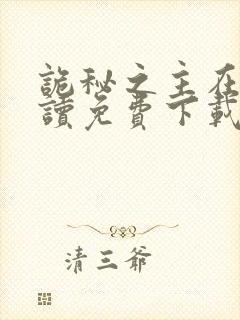 詭秘之主在
讀免費下載
清三爺